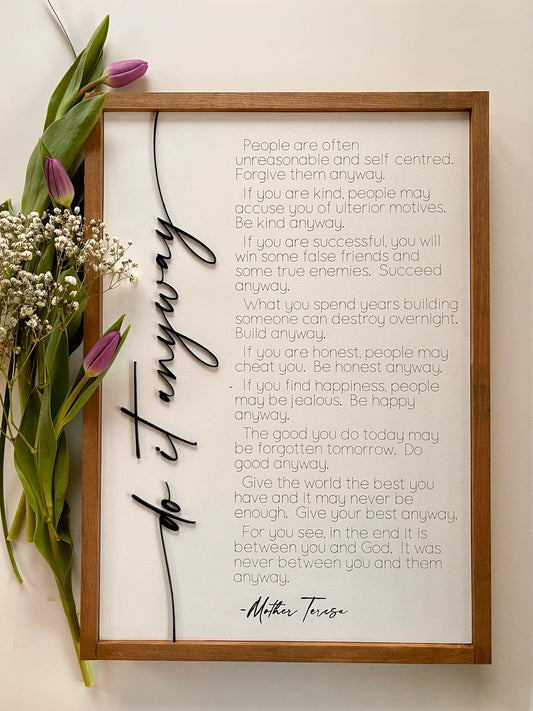 do it anyway
People are often
unreasonable and self centred.
Forgive them anyway.
If you are kind, people may
accuse you of ulterior motives.
Be kind anyway.
If you are successful, you will
win some false friends and
some true enemies. Succeed
anyway.
What you spend years building
someone can destroy overnight.
Build anyway.
If you are honest, people may
cheat you. Be honest anyway.
If you find happiness, people
may be jealous. Be happy
anyway.
The good you do today may
be forgotten tomorrow. Do
good anyway.
Give the world the best you
have and it may never be
enough. Give your best anyway.
For you see, in the end it is
between you and God. It was
never between you and them
anyway.
-Mother Teresa